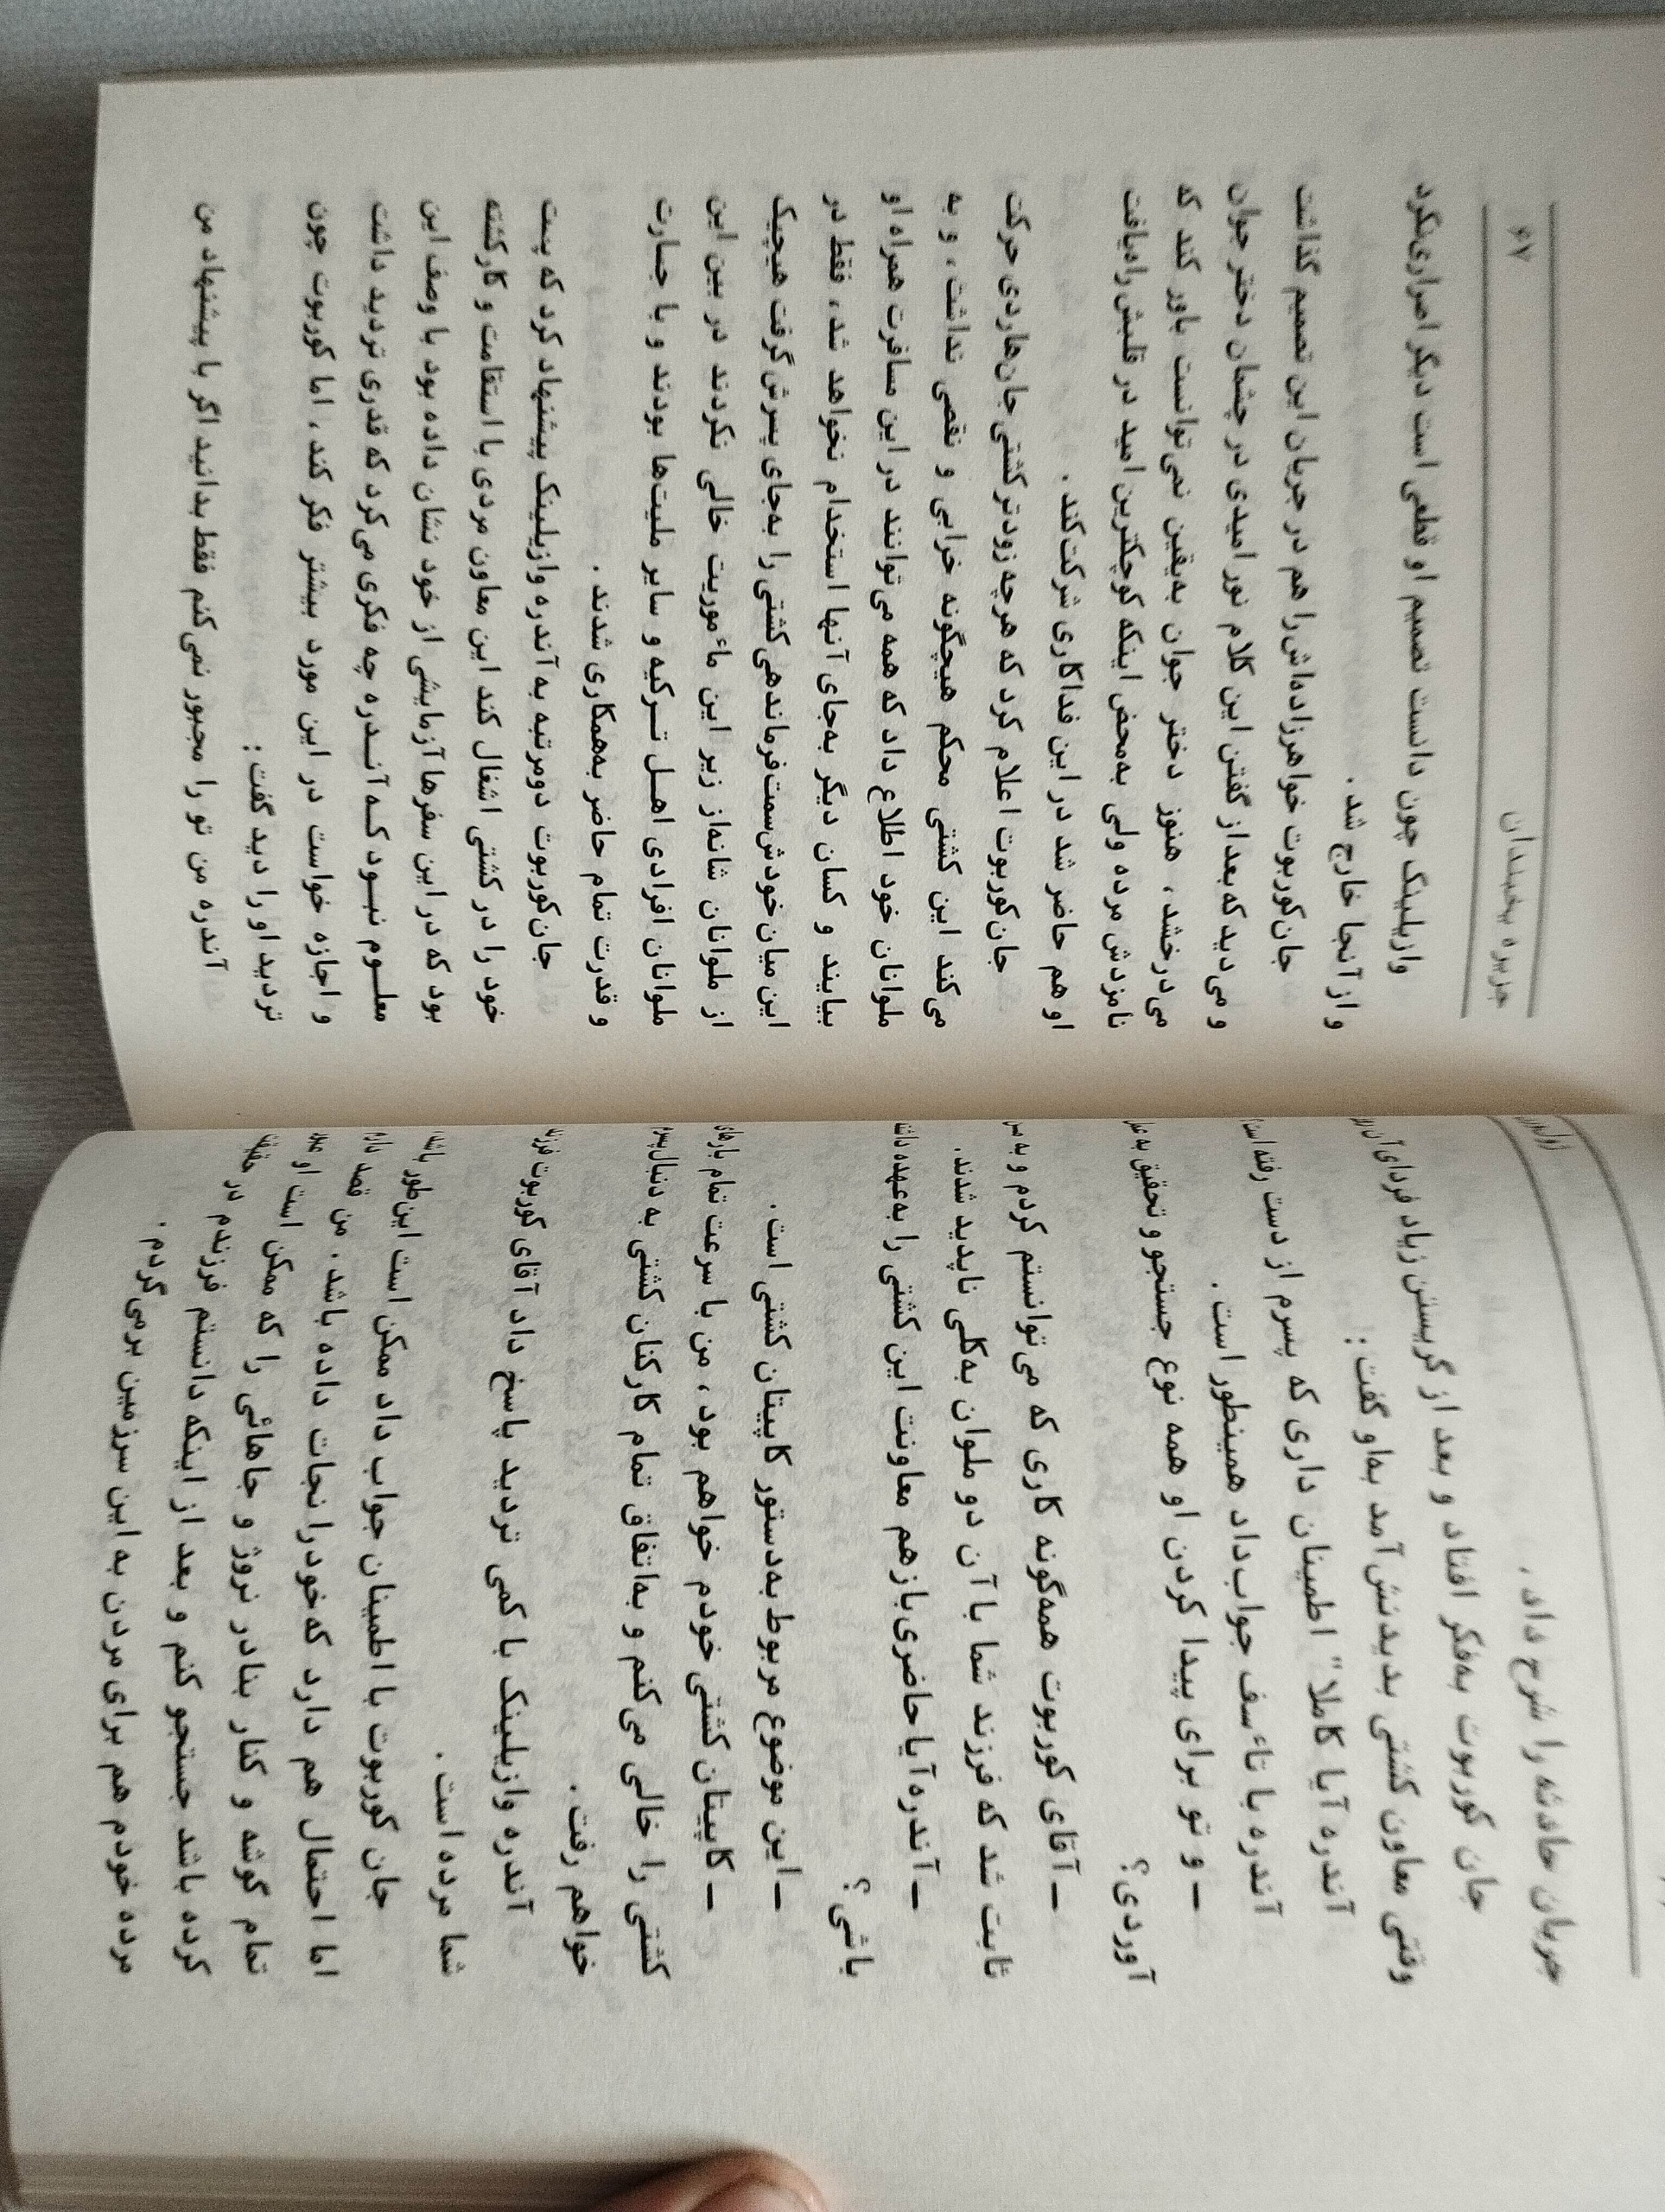 ژول‌ورن
جریان حادثه را شرح داد.
جان کوربوت به‌فکر افتاد و بعد از گریستن زیاد فردای آن روز
وقتی معاون کشتی بدیدنش آمد به‌او گفت:
آندره آیا کاملا" اطمینان داری که پسرم از دست رفته است
آندره با تاءسف جواب‌داد همینطور است.
ــ و تو برای پیدا کردن او همه نوع جستجو و تحقیق به عمل
آوردی؟
ــ آقای کوربوت همه‌گونه کاری که می‌توانستم کردم و به من
ثابت شد که فرزند شما با آن دو ملوان به‌کلی ناپدید شدند.
ــ آندره آیا حاضری‌بازهم معاونت این کشتی را به‌عهده داشته
باشی؟
ــ این موضوع مربوط به‌دستور کاپیتان کشتی است.
ــ کاپیتان کشتی خودم خواهم بود، من با سرعت تمام بارهای
کشتی را خالی می‌کنم و به‌اتفاق تمام کارکنان کشتی به دنبال پسرم
خواهم رفت.
آندره وازیلینک با کمی تردید پاسخ داد آقای کوربوت فرزند
شما مرده است.
جان کوربوت با اطمینان جواب داد ممکن است این‌طور باشد
اما احتمال هم دارد که‌خودرا نجات داده باشد. من قصد دارم
تمام گوشه و کنار بنادر نروژ و جاهائی را که ممکن است او عبور
کرده باشد جستجو کنم و بعد از اینکه دانستم فرزندم در حقیقت
مرده خودم هم برای مردن به این سرزمین برمی‌گردم.
جزیره یخبندان
۶۷
وازیلینک چون دانست تصمیم او قطعی است دیگر اصراری‌نکرد
و از آنجا خارج شد.
جان‌کوربوت خواهرزاده‌اش‌را هم در جریان این تصمیم گذاشت
و می‌دید که بعد از گفتن این کلام نور امیدی در چشمان دختر جوان
می‌درخشد، هنوز دختر جوان به‌یقین نمی‌توانست باور کند که
نامزدش مرده ولی به‌محض اینکه کوچکترین امید در قلبش راه‌یافت
او هم حاضر شد در این فداکاری شرکت‌کند.
جان‌کوربوت اعلام کرد که هرچه زودتر کشتی‌جان‌هاردی حرکت
می‌کند این کشتی محکم هیچگونه خرابی و نقصی نداشت، و به
ملوانان خود اطلاع داد که همه می‌توانند در این مسافرت همراه او
بیایند و کسان دیگر به‌جای آنها استخدام نخواهد شد، فقط در
این میان‌خودش‌سمت‌فرماندهی‌کشتی را به‌جای پسرش‌گرفت هیچیک
از ملوانان شانه‌از زیر این ماءموریت خالی نکردند در بین این
ملوانان افرادی اهـل تـرکیه و سایر ملیت‌ها بودند و با جسارت
و قدرت تمام حاضر به‌همکاری شدند.
جان‌کوربوت دومرتبه به آندره وازیلینک پیشنهاد کرد که پست
خود را در کشتی اشغال کند این معاون مردی با استقامت و کارکشته
بود که در این سفرها آزمایشی از خود نشان داده بود با وصف این
معلـوم نبـود کـه آنـدره چه فکری می‌کرد که قدری تردید داشت
و اجازه خواست در این مورد بیشتر فکر کند، اما کوربوت چون
تردید او را دید گفت:
آندره من تو را مجبور نمی‌کنم فقط بدانید اگر با پیشنهاد من